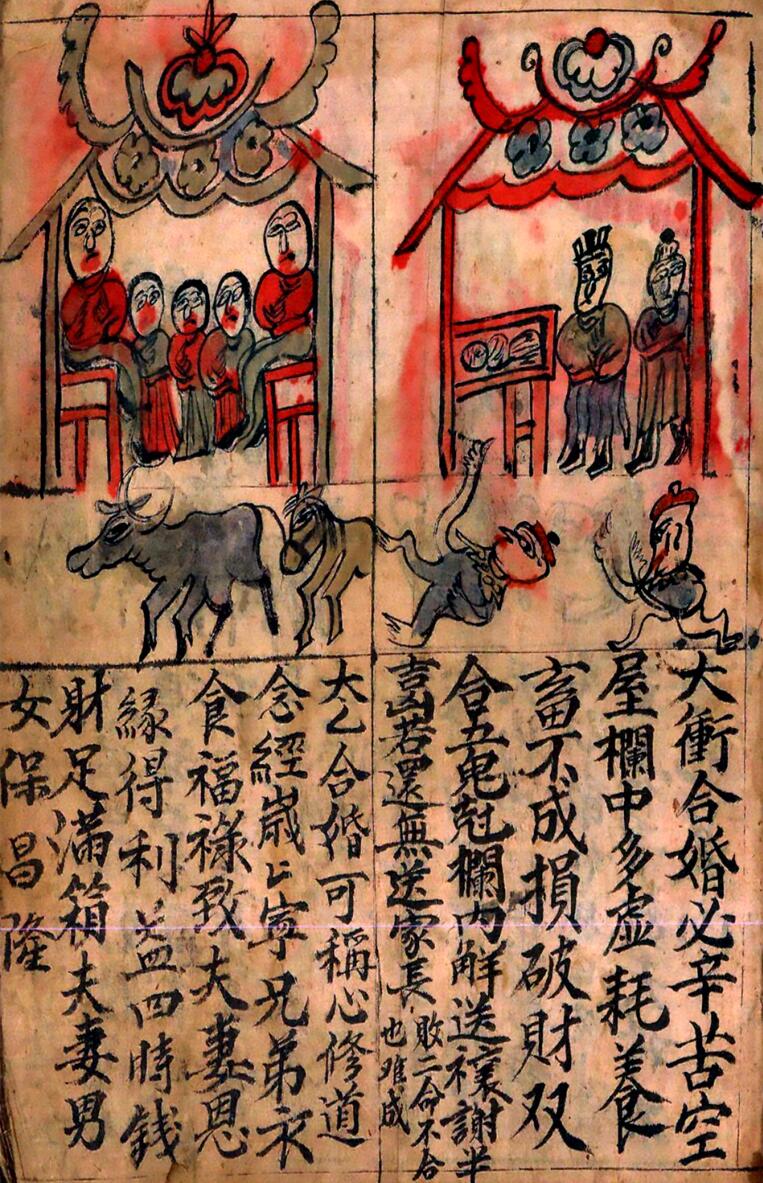 大衝合婚必辛苦空
屋欄中多虛耗養
畜不成損破財双
合五鬼尅欄内解送禳謝半
吉凶若還無送家長敗二命不合
也难成
大乙合婚可稱心修道
念經嵗〻寜兄弟衣
食福祿致夫妻恩
縁得利益四時錢
財足满箱夫妻男
女保昌隆